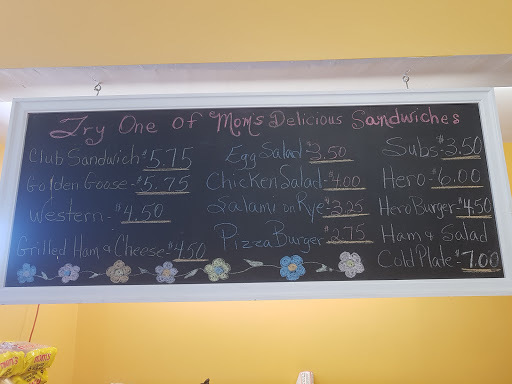 Try One of Mom's Delicious Sandwiches
Club Sandwich - $5.75
Golden Goose - $5.75
Western - $4.50
Grilled Ham & Cheese - $4.50
Egg Salad $2.50
Chicken Salad - $4.00
Salami on Rye - $3.25
Pizza Burger - $2.75
Subs - $3.50
Hero - $6.00
Hero Burger - $4.50
Ham & Salad
Cold Plate - $7.00